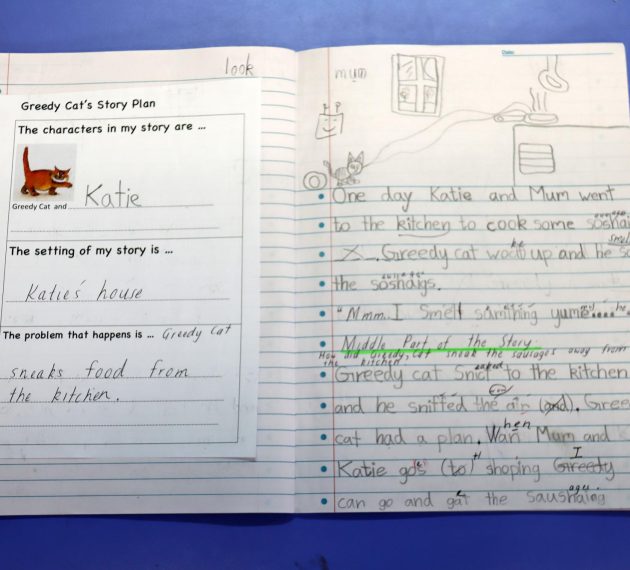 look
Greedy Cat's Story Plan
The characters in my story are ...
Greedy Cat and Katie
The setting of my story is ...
Katie's house
The problem that happens is ... Greedy Cat
sneaks food from
the kitchen.
Date:
mum
One day Katie and Mum went
to the kitchen to cook some
Greedy cat up and he
the soshaigs.
"Mmm. I smell
Middle Part of the Story.
How did Greedy Cat sneak the sausages away from
the kitchen
Greedy cat to the kitchen
and he sniffed the air (and). Gree
cat had a plan. Wan hen Mum and
Katie (to) shoping I Greedy
can go and the